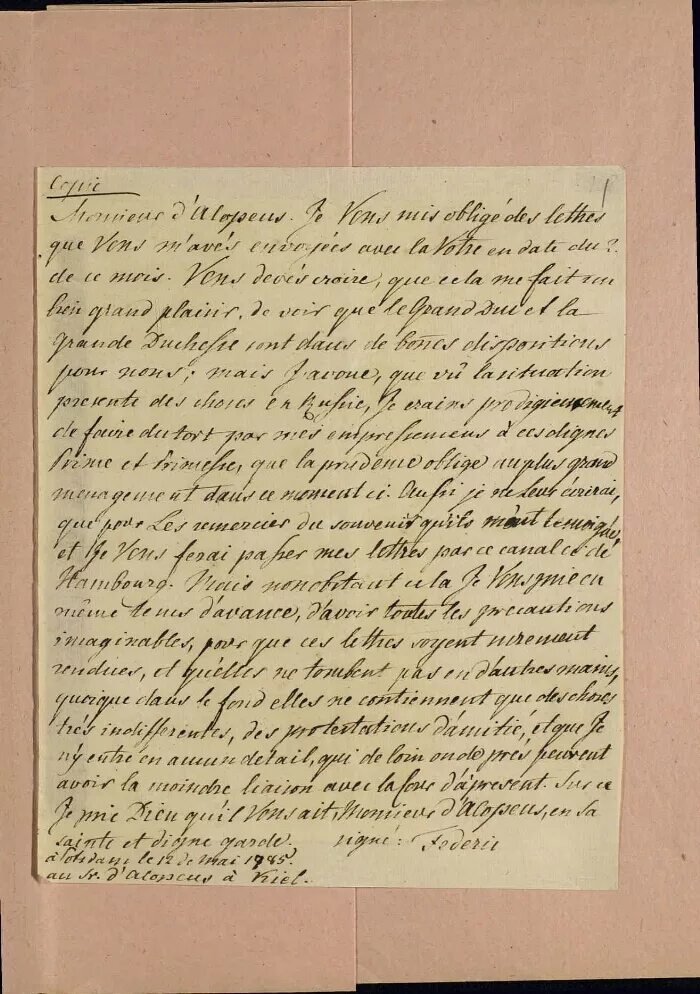 Copie
1
Monsieur d'Alopeus. Je Vous suis obligé des lettres
que Vous m'avés envoyées avec la Votre en date du 2.
de ce mois. Vous devés croire, que cela me fait un
bien grand plaisir, de voir que le Grand Duc et la
Grande Duchesse sont dans de bonnes dispositions
pour nous; mais J'avoue, que vû la situation
presente des choses en Russie, Je crains prodigieusement
de faire du tort par mes empressemens à ces dignes
Prince et Princesse, que la prudence oblige au plus grand
menagement dans ce moment ci. Aussi je ne leur écrirai,
que pour Les remercier du souvenir qu'ils m'ont temoigné,
et Je Vous ferai passer mes lettres par ce canal ci de
Hambourg. Mais nonobstant cela Je Vous prie en
même tems d'avance, d'avoir toutes les precautions
imaginables, pour que ces lettres soyent surement
rendues, et qu'elles ne tombent pas en d'autres mains,
quoique dans le fond elles ne contiennent que des choses
très indifferentes, des protestations d'amitié, et que Je
n'y entre en aucun detail, qui de loin ou de près peuvent
avoir la moindre liaison avec la cour d'àpresent. Sur ce
Je prie Dieu qu'il Vous ait, Monsieur d'Alopeus, en sa
sainte et digne garde. signé: Federic
à Potsdam le 12 de Mai 1785.
au Sr. d'Alopeus à Kiel.